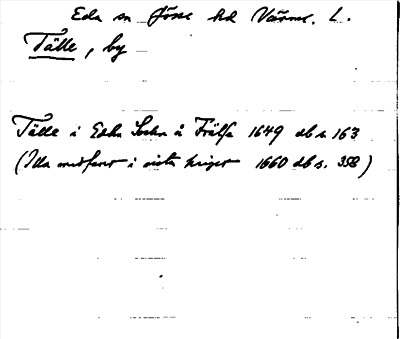 Eda sn Jösse hd Värml. L.
Tälle, by
Tälle i Eda Sochn å Frälse 1649 db s. 163
(Illa medfaret i sista kriget 1660 db s. 358)